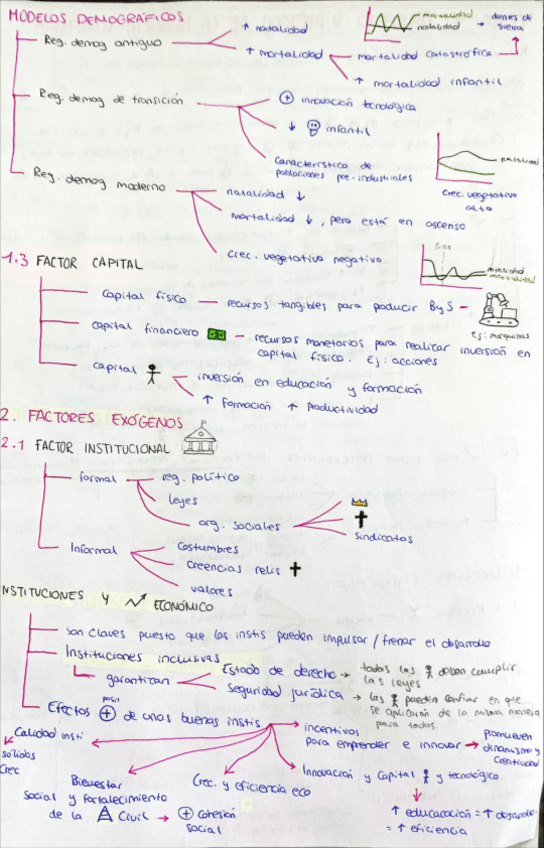 MODELOS DEMOGRÁFICOS
Reg. demog antiguo
↑ natalidad
↑ mortalidad
mortalidad catastrófica
↑ mortalidad infantil
mortalidad
natalidad
Reg. demog de transición
+ innovación tecnológica
↓ infantil
Característico de
poblaciones pre-industriales
natalidad
Crec. vegetativo
alto
Reg demog moderno
natalidad ↓
mortalidad ↓, pero está en ascenso
Crec. vegetativo negativo
natalidad
mortalidad
1.3 FACTOR CAPITAL
Capital físico — recursos tangibles para producir ByS –
Ej: máquinas
capital financiero — recursos monetarios para realizar inversión en
capital físico. Ej: acciones
capital
inversión en educación y formación
↑ Formación ↑ Productividad
2. FACTORES EXÓGENOS
2.1 FACTOR INSTITUCIONAL
formal
reg. político
leyes
org. sociales
sindicatos
Informal
Costumbres
Creencias relis
valores
NSTITUCIONES Y ECONÓMICO
son claves puesto que las instis pueden impulsar / frenar el dsarrollo
Instituciones inclusivas
garantizan
Estado de derecho → todas las deben cumplir
las leyes
Seguridad jurídica → las pueden confiar en que
se aplicarán de la misma manera
para todos.
Efectos + de unas buenas instis
posit
Calidad insti
sólidas
Crec
Bienestar
Social y fortalecimiento
de la Civil → + cohesión
social
Crec. y eficiencia eco
incentivos
para emprender e innovar → promueven
dinamismo y
creatividad
Innovación y Capital y tecnológico
↑ educacación = ↑ dsarrollo
= ↑ eficiencia